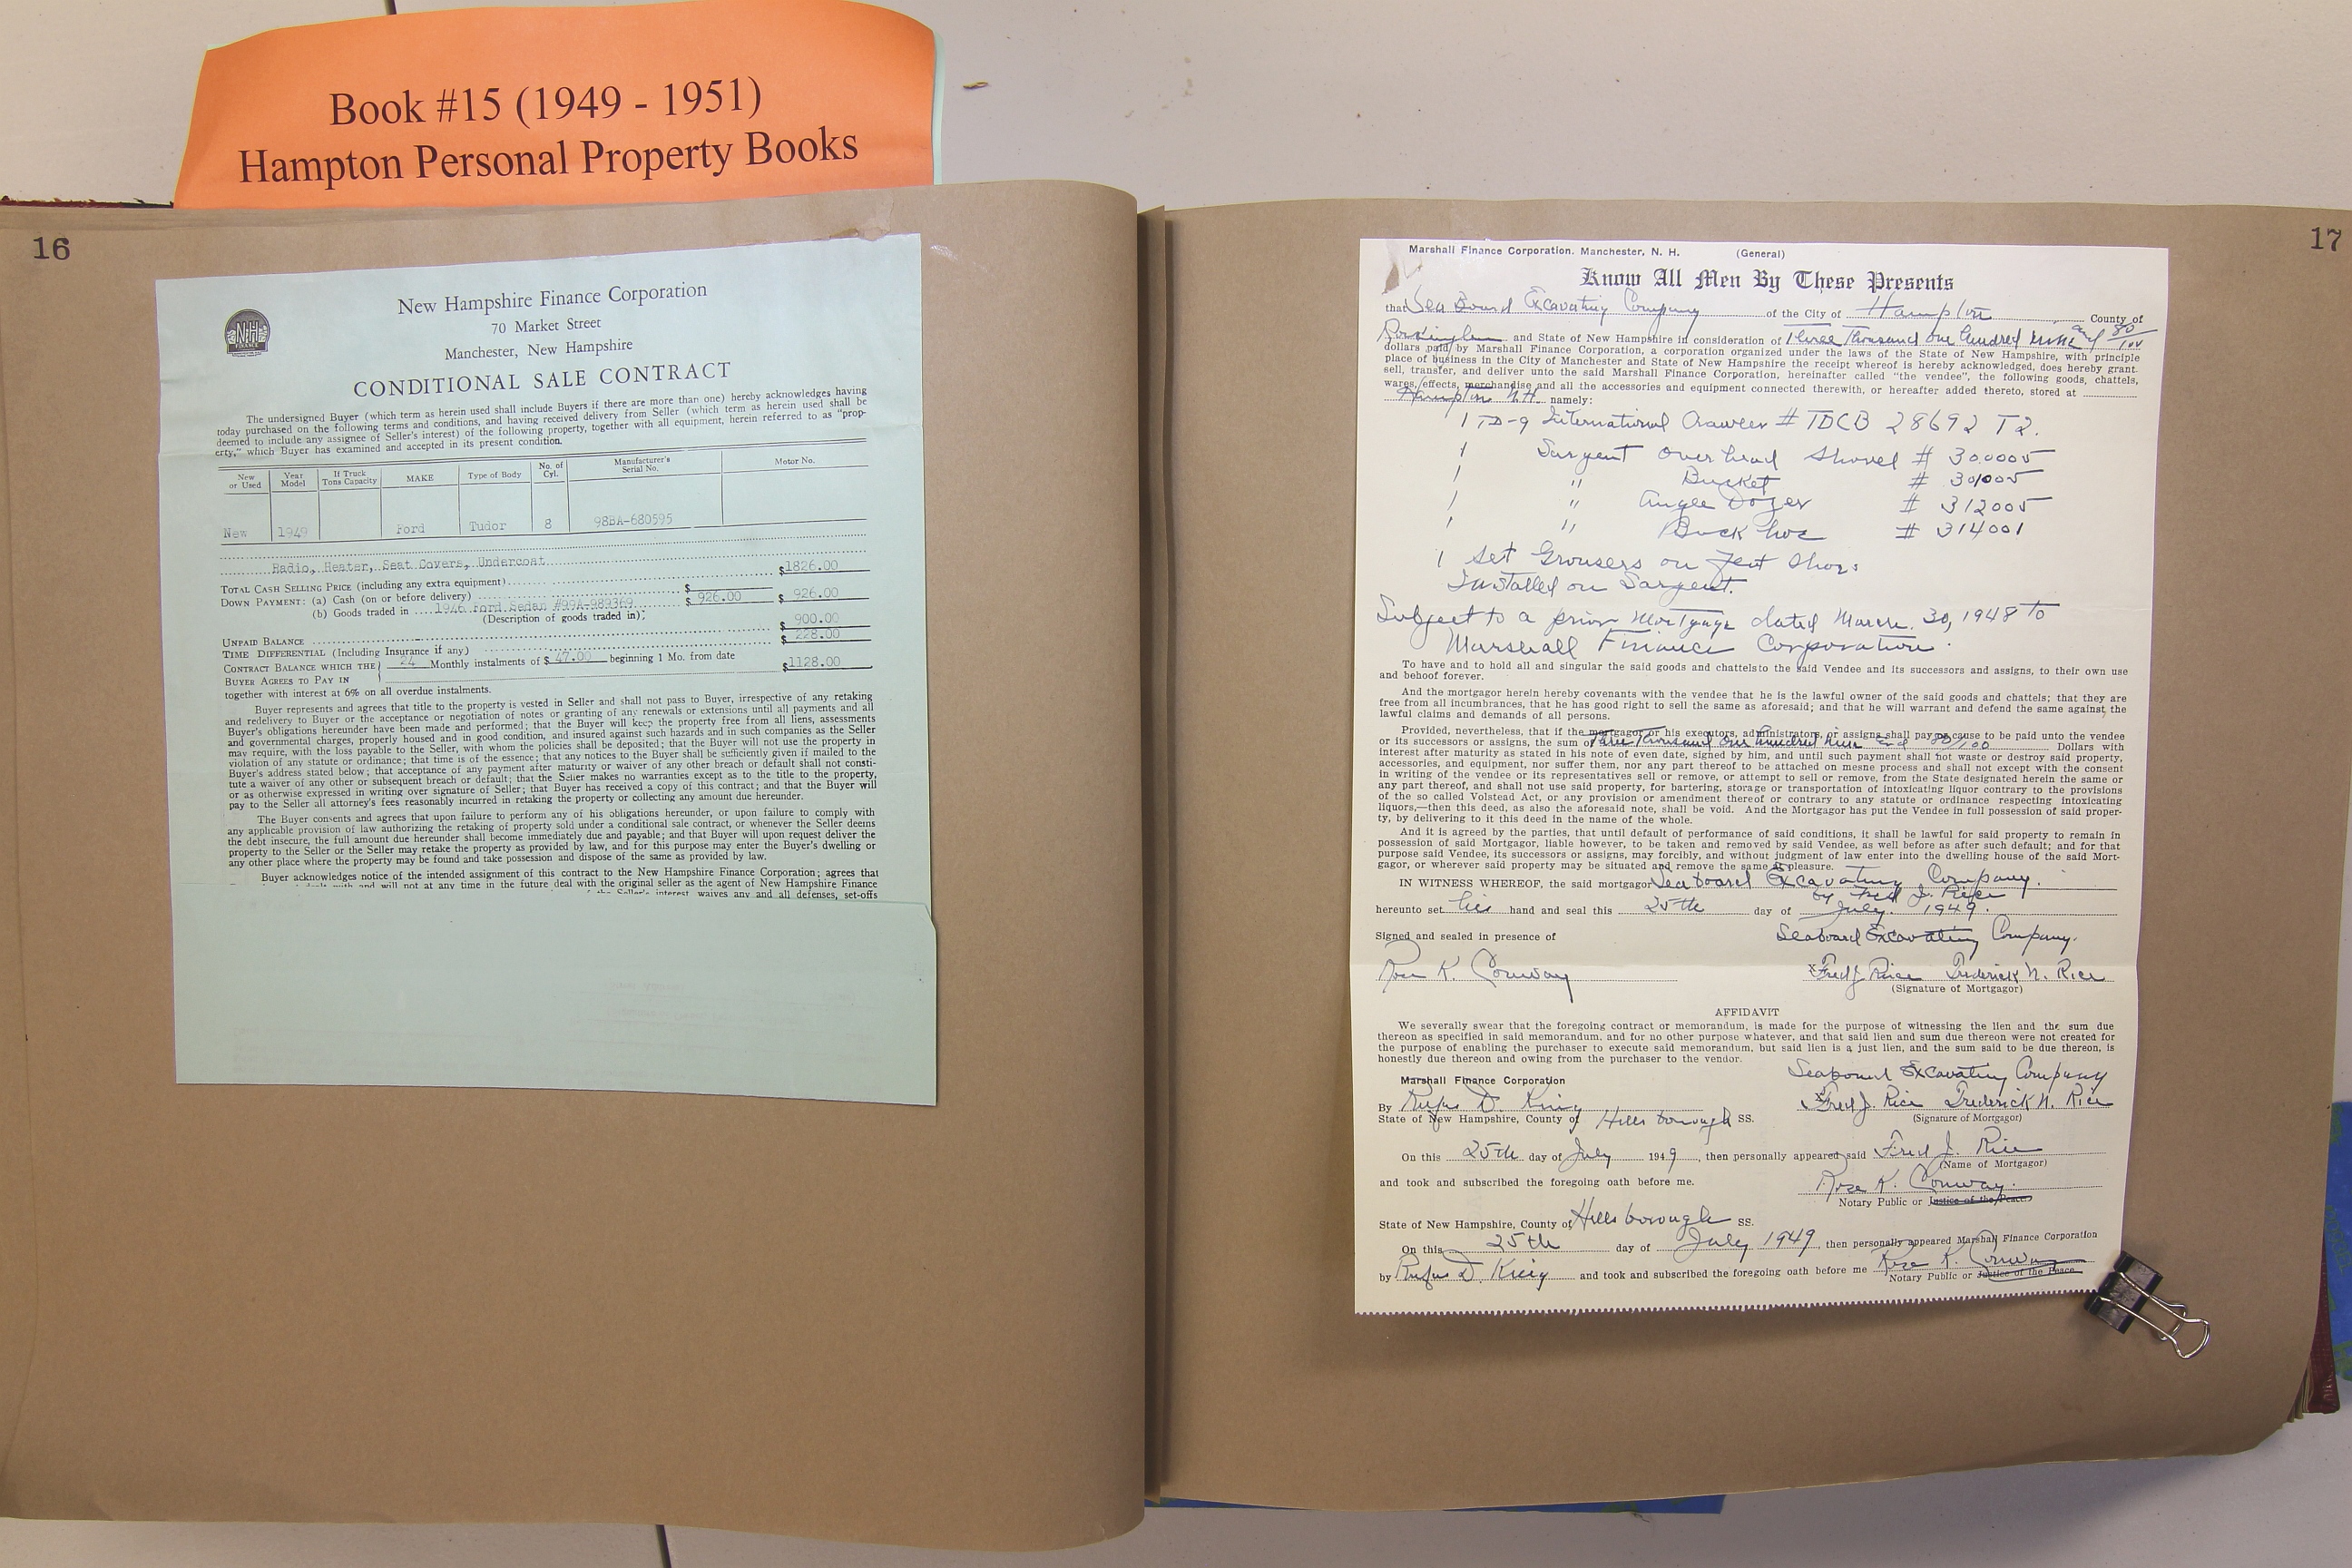 Book #15 (1949 - 1951)
Hampton Personal Property Books
16
N H
FINANCE
New Hampshire Finance Corporation
70 Market Street
Manchester, New Hampshire
CONDITIONAL SALE CONTRACT
The undersigned Buyer (which term as herein used shall include Buyers if there are more than one) hereby acknowledges having
today purchased on the following terms and conditions, and having received delivery from Seller (which term as herein used shall be
deemed to include any assignee of Seller's interest) of the following property, together with all equipment, herein referred to as "prop-
erty," which Buyer has examined and accepted in its present condition.
New or Used Year Model If Truck Tons Capacity MAKE Type of Body No. of Cyl. Manufacturer's Serial No. Motor No.
New 1949 Ford Tudor 8 98BA-680595
Radio, Heater, Seat Covers, Undercoat
TOTAL CASH SELLING PRICE (including any extra equipment) $1826.00
DOWN PAYMENT: (a) Cash (on or before delivery) $
(b) Goods traded in 1946 Ford Sedan #99A-989369 $ 926.00 $ 926.00
(Description of goods traded in);
UNPAID BALANCE $ 900.00
TIME DIFFERENTIAL (Including Insurance if any) $ 228.00
CONTRACT BALANCE WHICH THE 24 Monthly instalments of $ 47.00 beginning 1 Mo. from date
BUYER AGREES TO PAY IN $1128.00
together with interest at 6% on all overdue instalments.
Buyer represents and agrees that title to the property is vested in Seller and shall not pass to Buyer, irrespective of any retaking
and redelivery to Buyer or the acceptance or negotiation of notes or granting of any renewals or extensions until all payments and all
Buyer's obligations hereunder have been made and performed; that the Buyer will keep the property free from all liens, assessments
and governmental charges, properly housed and in good condition, and insured against such hazards and in such companies as the Seller
may require, with the loss payable to the Seller, with whom the policies shall be deposited; that the Buyer will not use the property in
violation of any statute or ordinance; that time is of the essence; that any notices to the Buyer shall be sufficiently given if mailed to the
Buyer's address stated below; that acceptance of any payment after maturity or waiver of any other breach or default shall not consti-
tute a waiver of any other or subsequent breach or default; that the Seller makes no warranties except as to the title to the property,
or as otherwise expressed in writing over signature of Seller; that Buyer has received a copy of this contract; and that the Buyer will
pay to the Seller all attorney's fees reasonably incurred in retaking the property or collecting any amount due hereunder.
The Buyer consents and agrees that upon failure to perform any of his obligations hereunder, or upon failure to comply with
any applicable provision of law authorizing the retaking of property sold under a conditional sale contract, or whenever the Seller deems
the debt insecure, the full amount due hereunder shall become immediately due and payable; and that Buyer will upon request deliver the
property to the Seller or the Seller may retake the property as provided by law, and for this purpose may enter the Buyer's dwelling or
any other place where the property may be found and take possession and dispose of the same as provided by law.
Buyer acknowledges notice of the intended assignment of this contract to the New Hampshire Finance Corporation; agrees that
and will not at any time in the future deal with the original seller as the agent of New Hampshire Finance
Seller's interest waives any and all defenses, set-offs
17
Marshall Finance Corporation. Manchester, N. H. (General)
Know All Men By These Presents
that Sea Board Excavating Company of the City of Hampton County of
Rockingham and State of New Hampshire in consideration of Three Thousand one hundred nine and 80/100
dollars paid by Marshall Finance Corporation, a corporation organized under the laws of the State of New Hampshire, with principle
place of business in the City of Manchester and State of New Hampshire the receipt whereof is hereby acknowledged, does hereby grant.
sell, transfer, and deliver unto the said Marshall Finance Corporation, hereinafter called "the vendee", the following goods, chattels,
wares, effects, merchandise and all the accessories and equipment connected therewith, or hereafter added thereto, stored at
Hampton N.H. namely:
1 TD-9 International Crawler # TDCB 28692 T2.
1 Sargent Over head Shovel # 300005
1 " Bucket # 301005
1 " Angle Dozer # 312005
1 " Back hoe # 314001
1 set Grousers on
Installed on Sargent.
Subject to a prior Mortgage dated March. 30, 1948 to
Marshall Finance Corporation.
To have and to hold all and singular the said goods and chattelsto the said Vendee and its successors and assigns, to their own use
and behoof forever.
And the mortgagor herein hereby covenants with the vendee that he is the lawful owner of the said goods and chattels; that they are
free from all incumbrances, that he has good right to sell the same as aforesaid; and that he will warrant and defend the same against the
lawful claims and demands of all persons.
Provided, nevertheless, that if the mortgagor or his executors, administrators, or assigns shall pay or cause to be paid unto the vendee
or its successors or assigns, the sum of Three Thousand One hundred nine and 80/100 Dollars with
interest after maturity as stated in his note of even date, signed by him, and until such payment shall not waste or destroy said property,
accessories, and equipment, nor suffer them, nor any part thereof to be attached on mesne process and shall not except with the consent
in writing of the vendee or its representatives sell or remove, or attempt to sell or remove, from the State designated herein the same or
any part thereof, and shall not use said property, for bartering, storage or transportation of intoxicating liquor contrary to the provisions
of the so called Volstead Act, or any provision or amendment thereof or contrary to any statute or ordinance respecting intoxicating
liquors,—then this deed, as also the aforesaid note, shall be void. And the Mortgagor has put the Vendee in full possession of said proper-
ty, by delivering to it this deed in the name of the whole.
And it is agreed by the parties, that until default of performance of said conditions, it shall be lawful for said property to remain in
possession of said Mortgagor, liable however, to be taken and removed by said Vendee, as well before as after such default; and for that
purpose said Vendee, its successors or assigns, may forcibly, and without judgment of law enter into the dwelling house of the said Mort-
gagor, or wherever said property may be situated and remove the same at pleasure.
IN WITNESS WHEREOF, the said mortgagor Seaboard Excavating Company.
by Fred J. Rice
hereunto set his hand and seal this 25th day of July. 1949.
Signed and sealed in presence of Seaboard Excavating Company.
Rose K. Conway x Fred J. Rice Frederick N. Rice
(Signature of Mortgagor)
AFFIDAVIT
We severally swear that the foregoing contract or memorandum, is made for the purpose of witnessing the lien and the sum due
thereon as specified in said memorandum, and for no other purpose whatever, and that said lien and sum due thereon were not created for
the purpose of enabling the purchaser to execute said memorandum, but said lien is a just lien, and the sum said to be due thereon, is
honestly due thereon and owing from the purchaser to the vendor.
Seaboard Excavating Company
Marshall Finance Corporation
By Rufus D. King x Fred J. Rice Frederick N. Rice
State of New Hampshire, County of Hillsborough SS. (Signature of Mortgagor)
On this 25th day of July 1949, then personally appeared said Fred J. Rice
(Name of Mortgagor)
and took and subscribed the foregoing oath before me. Rose K. Conway.
Notary Public or Justice of the Peace.
State of New Hampshire, County of Hillsborough SS.
On this 25th day of July 1949, then personally appeared Marshall Finance Corporation
by Rufus D. King and took and subscribed the foregoing oath before me Rose K. Conway
Notary Public or Justice of the Peace